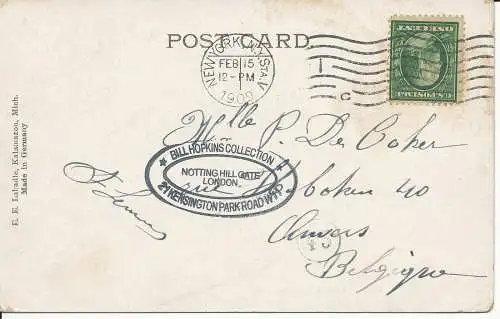 POST CARD
NEW YORK, N.Y. STA. V
FEB 15
12-PM
1909
C
U.S. POSTAGE
ONE CENT
Mlle P. De Coker
rue Hoboken 40
Anvers
Belgique
BILL HOPKINS COLLECTION
NOTTING HILL GATE
LONDON
21 KENSINGTON PARK ROAD W11
E. R. Labadie, Kalamazoo, Mich.
Made in Germany